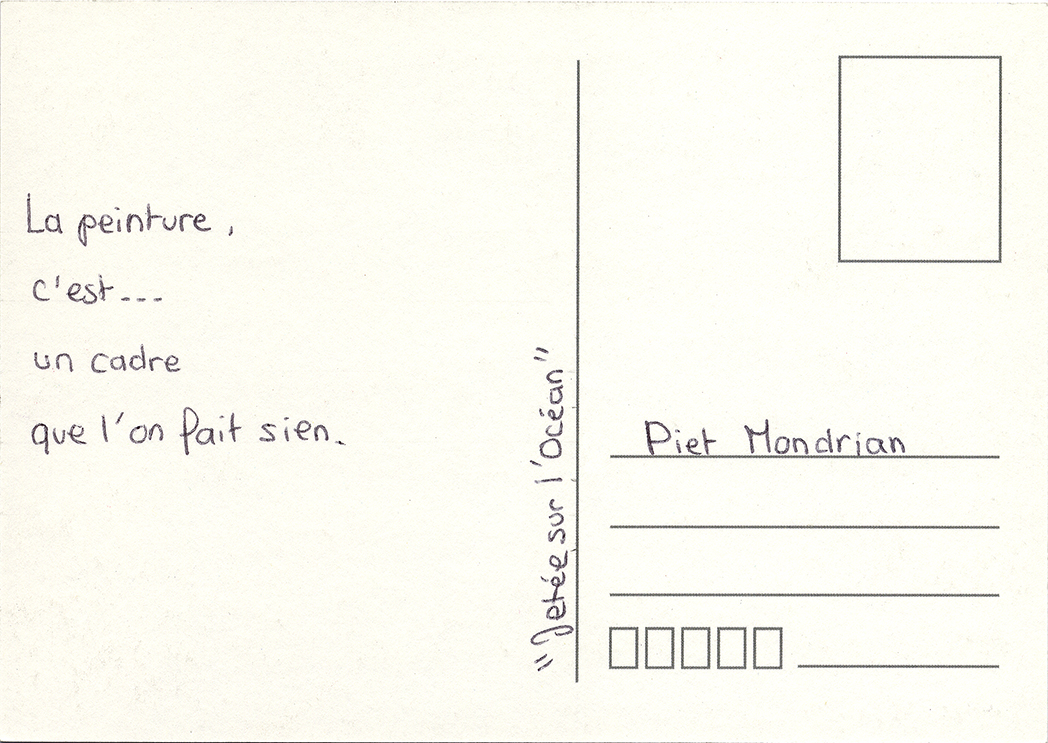 La peinture,
c'est---
un cadre
que l'on fait sien.
"Jetée sur l'Océan"
Piet Mondrian